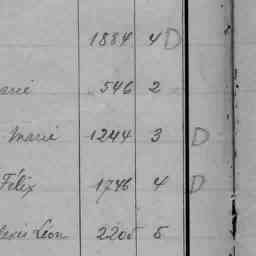 1884 4 D
546 2
Marie 1244 3 D
Félix 1746 4 D
Léon 2205 5